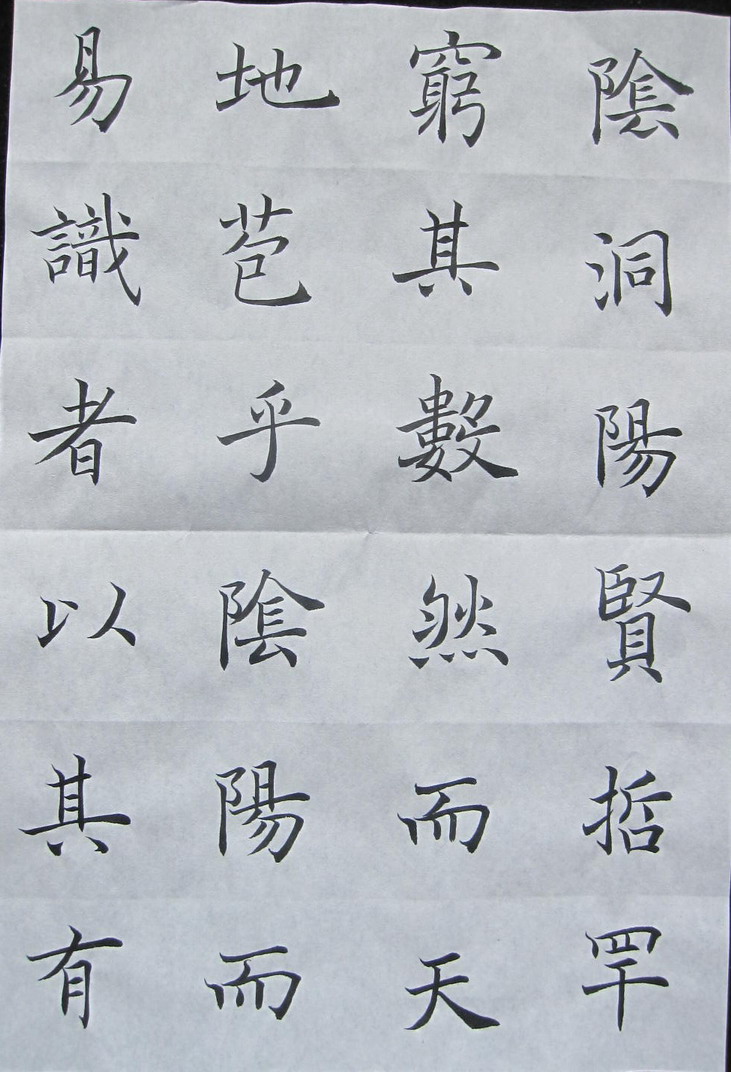 陰洞陽賢哲罕
窮其數然而天
地苞乎陰陽而
易識者以其有